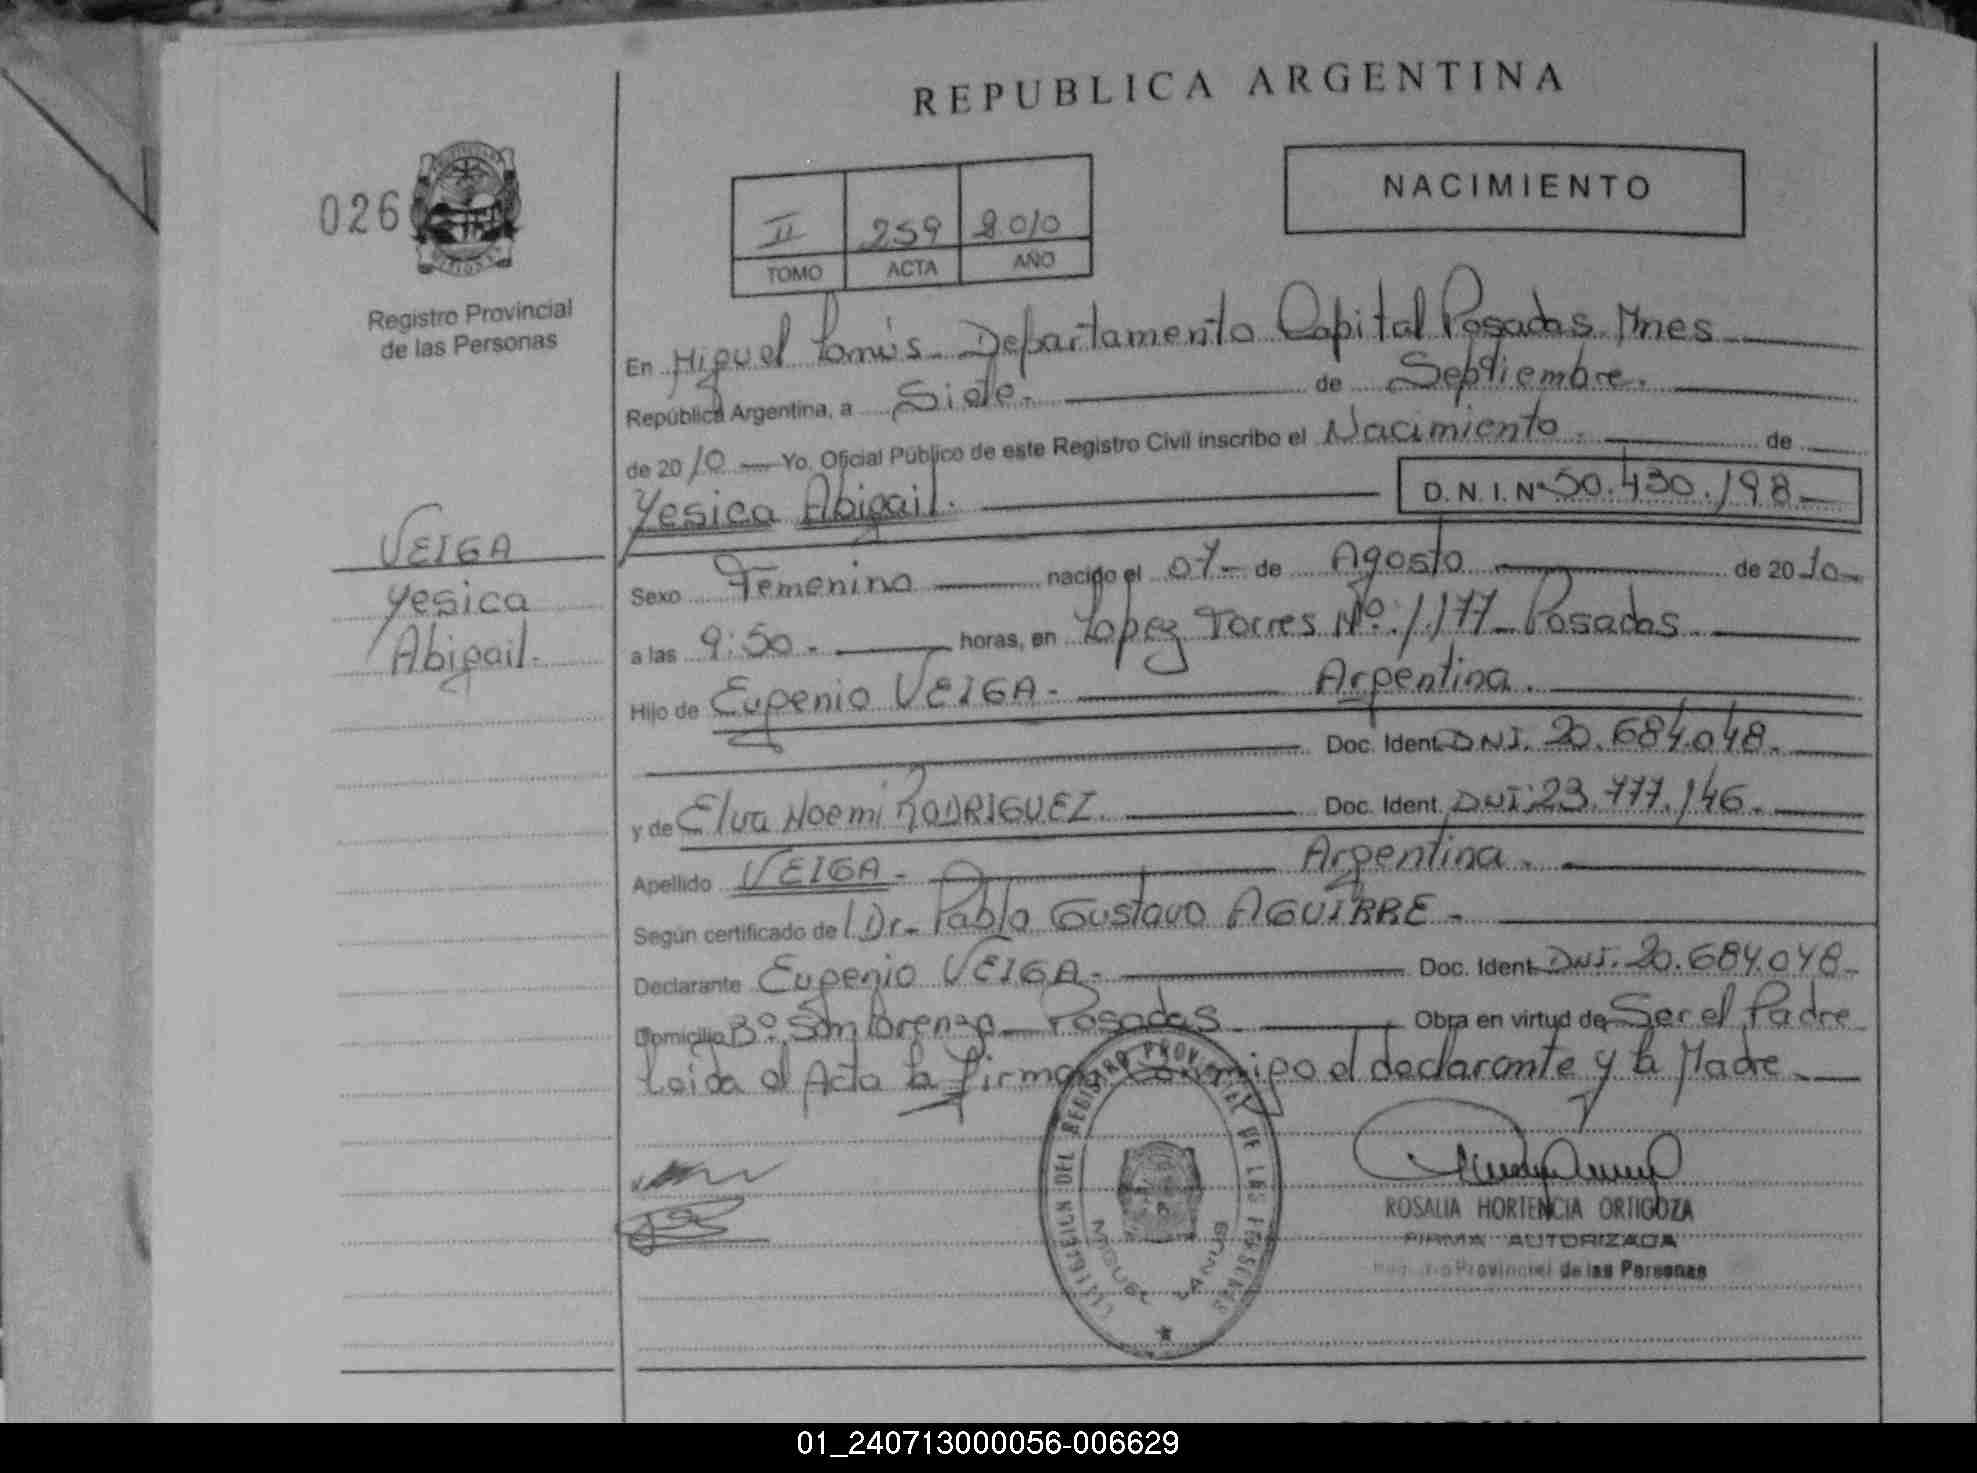 REPUBLICA ARGENTINA
026
NACIMIENTO
II 259 2010
TOMO ACTA AÑO
Registro Provincial
de las Personas
En Miguel Lanús - Departamento Capital Posadas Mnes
República Argentina, a Siete. de Septiembre.
de 2010 Yo, Oficial Público de este Registro Civil inscribo el Nacimiento. de
Yesica Abigail. D.N.I. Nº 50.430.198
VEIGA
Yesica
Abigail.
Sexo Femenino nacido el 07- de Agosto de 2010
a las 9:50. horas, en Lopez Torres Nº. 1.177- Posadas
Hijo de Eugenio VEIGA- Argentina.
Doc. Ident. DNI. 20.684.048.
y de Elva Noemi RODRIGUEZ. Doc. Ident. DNI: 23.777.146.
Apellido VEIGA- Argentina.
Según certificado del Dr. Pablo Gustavo AGUIRRE-
Declarante Eugenio VEIGA- Doc. Ident. DNI. 20.684.048
Domicilio Bº. San Lorenzo- Posadas Obra en virtud de Ser el Padre
Leida el Acta la firman Conmigo el declarante y la Madre
DEL REGISTRO PROVINCIAL DE LAS PERSONAS
MIGUEL LANUS
ROSALIA HORTENCIA ORTIGOZA
FIRMA AUTORIZADA
Registro Provincial de las Personas
01_240713000056-006629